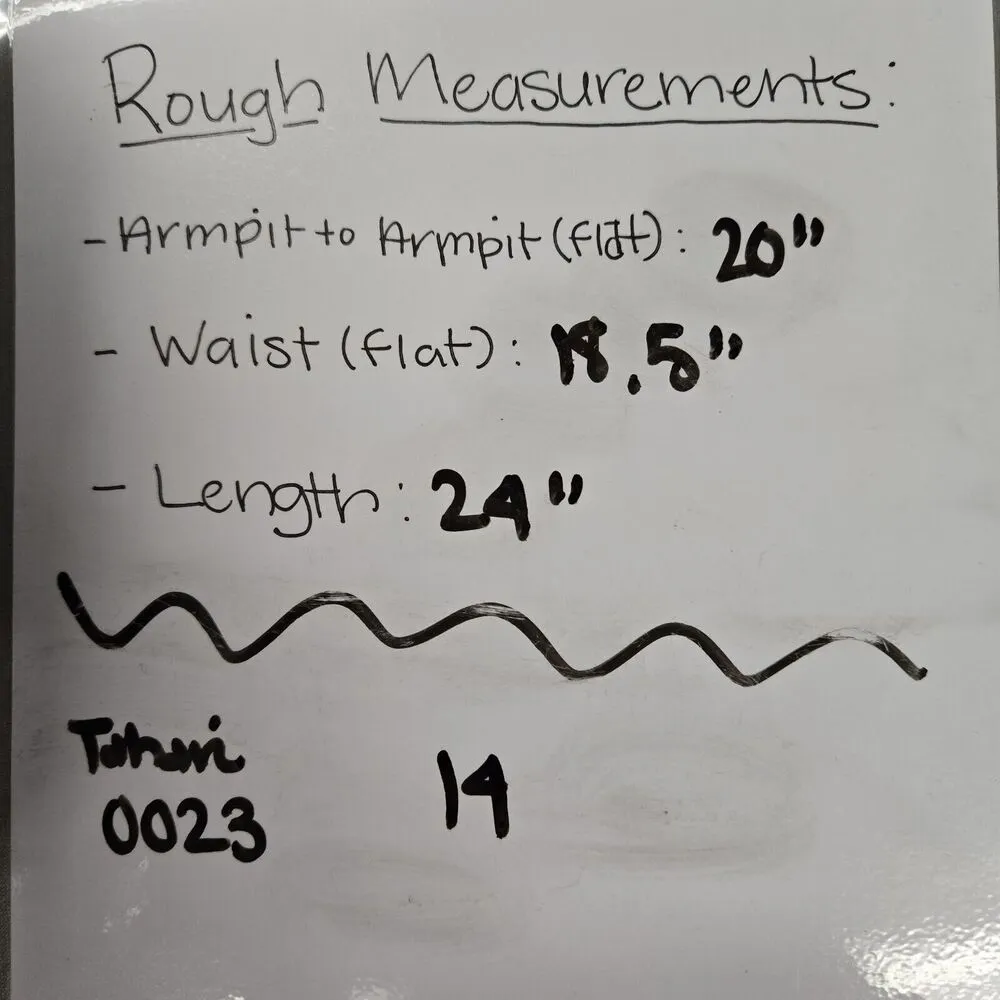 Rough Measurements:
- Armpit to Armpit (flat): 20"
- Waist (flat): 18.5"
- Length: 24"
Tahari 14
0023